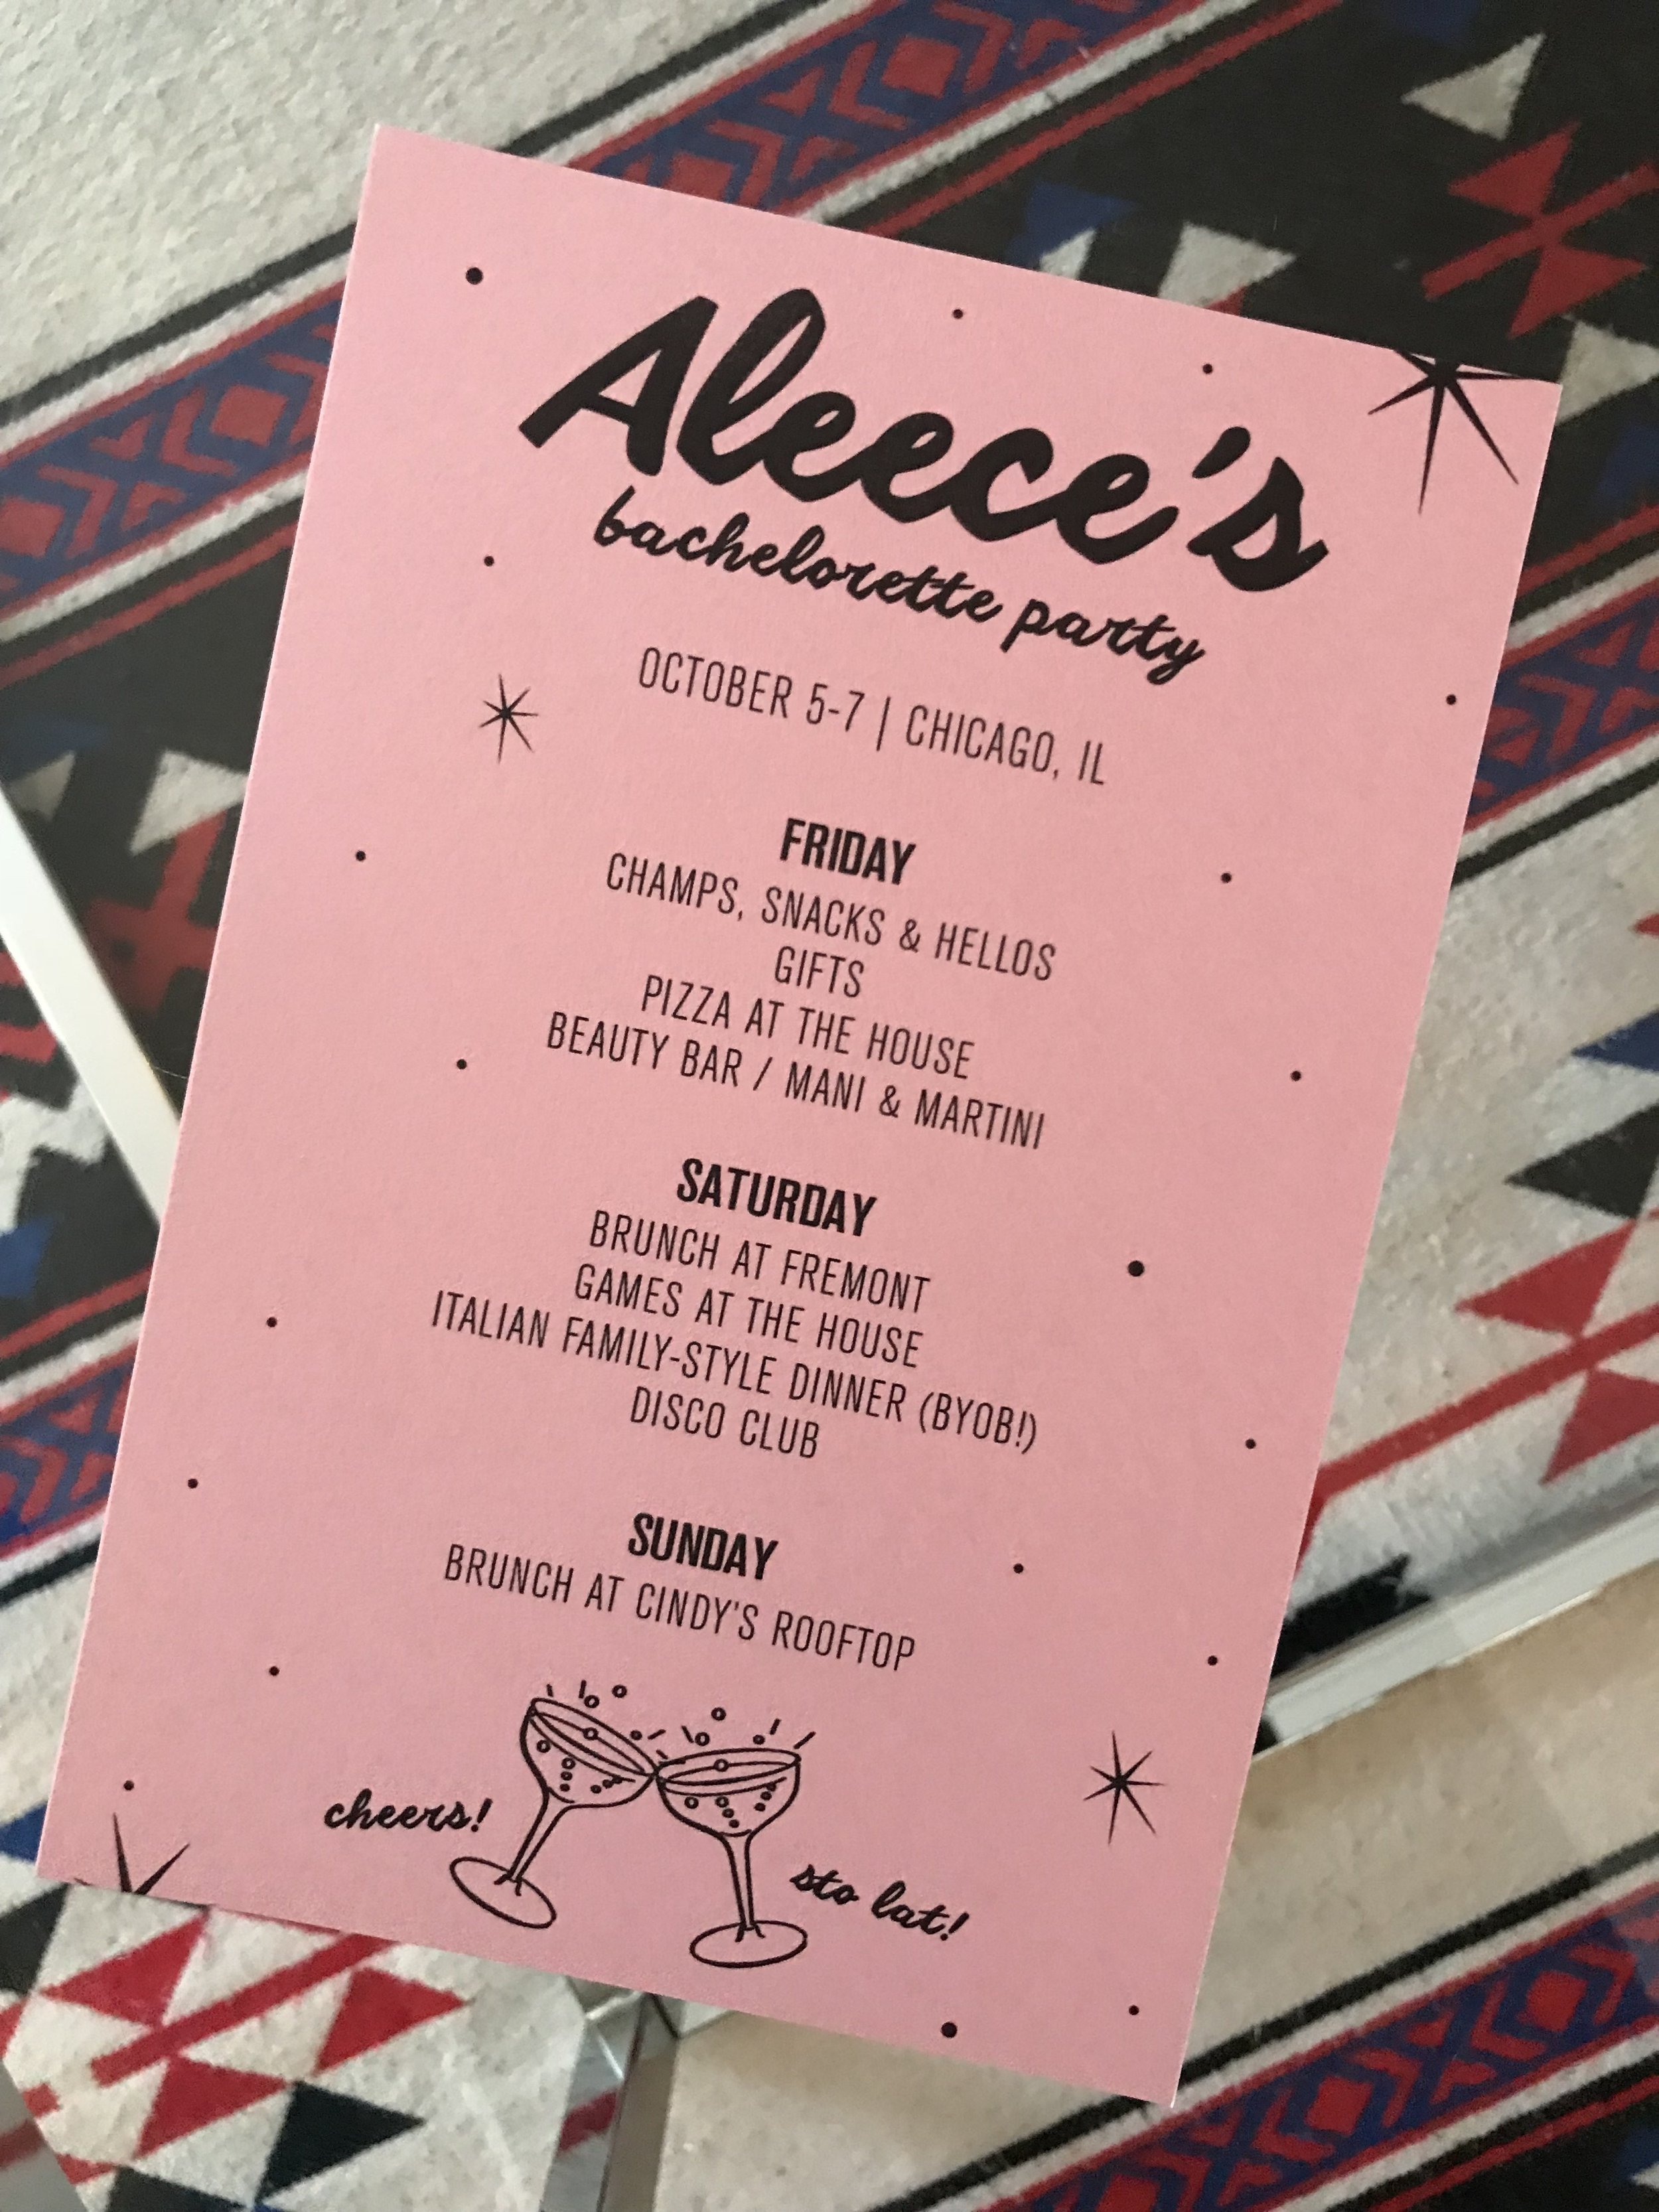 Aleece's
bachelorette party
OCTOBER 5-7 | CHICAGO, IL
FRIDAY
CHAMPS, SNACKS & HELLOS
GIFTS
PIZZA AT THE HOUSE
BEAUTY BAR / MANI & MARTINI
SATURDAY
BRUNCH AT FREMONT
GAMES AT THE HOUSE
ITALIAN FAMILY-STYLE DINNER (BYOB!)
DISCO CLUB
SUNDAY
BRUNCH AT CINDY'S ROOFTOP
cheers!
sto lat!